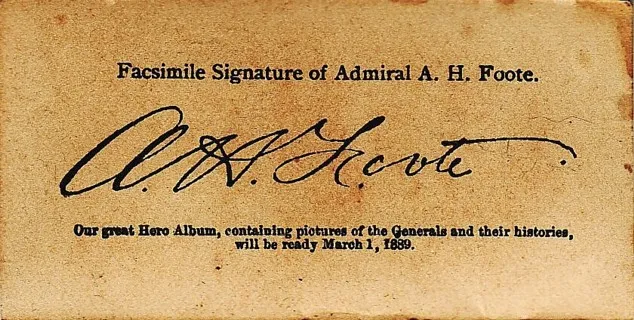 Facsimile Signature of Admiral A. H. Foote.
A. H. Foote.
Our great Hero Album, containing pictures of the Generals and their histories,
will be ready March 1, 1889.